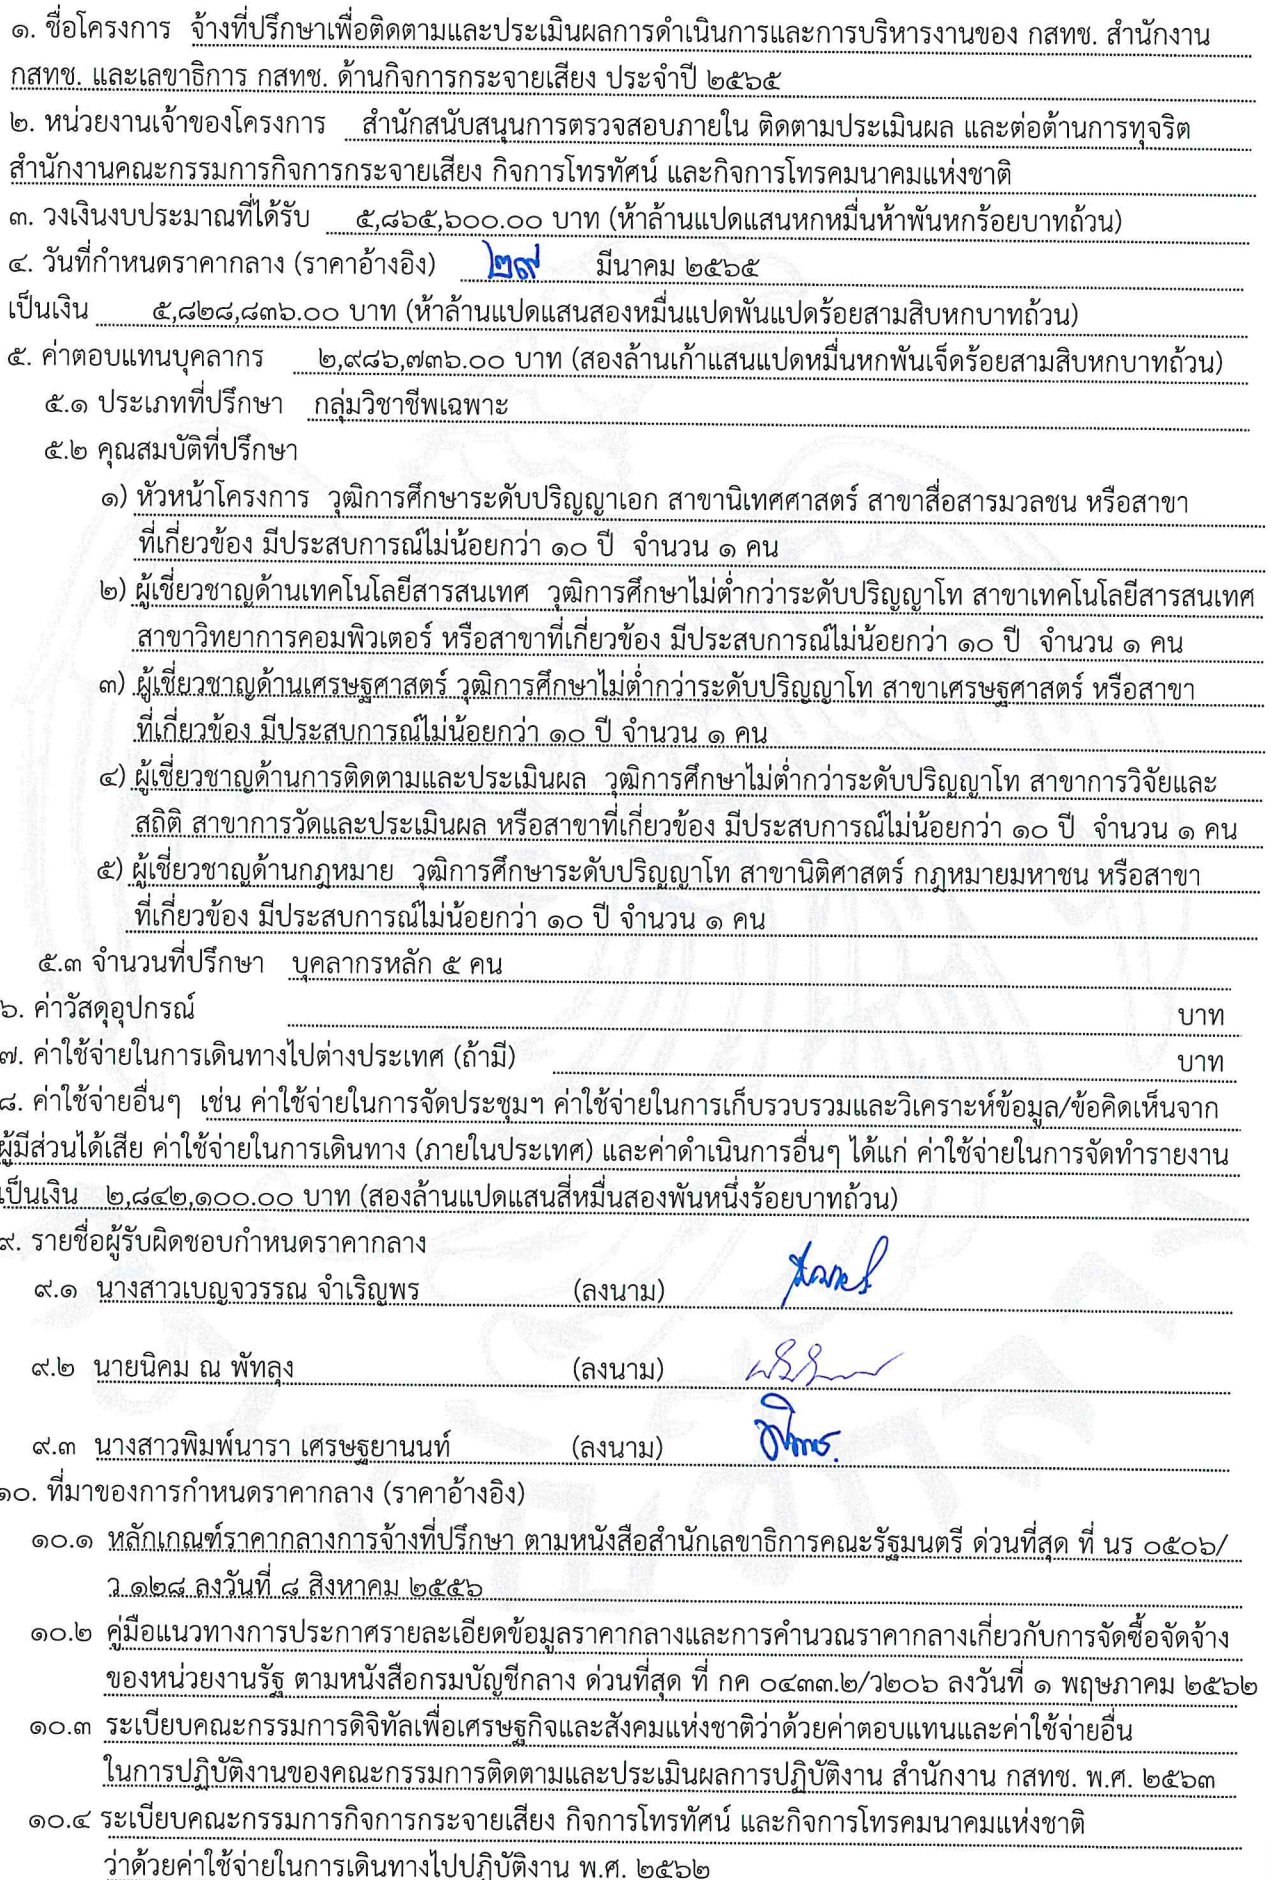 ๑. ชื่อโครงการ จ้างที่ปรึกษาเพื่อติดตามและประเมินผลการดำเนินการและการบริหารงานของ กสทช. สำนักงาน
กสทช. และเลขาธิการ กสทช. ด้านกิจการกระจายเสียง ประจำปี ๒๕๖๕
๒. หน่วยงานเจ้าของโครงการ สำนักสนับสนุนการตรวจสอบภายใน ติดตามประเมินผล และต่อต้านการทุจริต
สำนักงานคณะกรรมการกิจการกระจายเสียง กิจการโทรทัศน์ และกิจการโทรคมนาคมแห่งชาติ
๓. วงเงินงบประมาณที่ได้รับ ๕,๘๖๕,๖๐๐.๐๐ บาท (ห้าล้านแปดแสนหกหมื่นห้าพันหกร้อยบาทถ้วน)
๔. วันที่กำหนดราคากลาง (ราคาอ้างอิง) ๒๙ มีนาคม ๒๕๖๕
เป็นเงิน ๕,๘๒๘,๘๓๖.๐๐ บาท (ห้าล้านแปดแสนสองหมื่นแปดพันแปดร้อยสามสิบหกบาทถ้วน)
๕. ค่าตอบแทนบุคลากร ๒,๙๘๖,๗๓๖.๐๐ บาท (สองล้านเก้าแสนแปดหมื่นหกพันเจ็ดร้อยสามสิบหกบาทถ้วน)
๕.๑ ประเภทที่ปรึกษา กลุ่มวิชาชีพเฉพาะ
๕.๒ คุณสมบัติที่ปรึกษา
๑) หัวหน้าโครงการ วุฒิการศึกษาระดับปริญญาเอก สาขานิเทศศาสตร์ สาขาสื่อสารมวลชน หรือสาขา
ที่เกี่ยวข้อง มีประสบการณ์ไม่น้อยกว่า ๑๐ ปี จำนวน ๑ คน
๒) ผู้เชี่ยวชาญด้านเทคโนโลยีสารสนเทศ วุฒิการศึกษาไม่ต่ำกว่าระดับปริญญาโท สาขาเทคโนโลยีสารสนเทศ
สาขาวิทยาการคอมพิวเตอร์ หรือสาขาที่เกี่ยวข้อง มีประสบการณ์ไม่น้อยกว่า ๑๐ ปี จำนวน ๑ คน
๓) ผู้เชี่ยวชาญด้านเศรษฐศาสตร์ วุฒิการศึกษาไม่ต่ำกว่าระดับปริญญาโท สาขาเศรษฐศาสตร์ หรือสาขา
ที่เกี่ยวข้อง มีประสบการณ์ไม่น้อยกว่า ๑๐ ปี จำนวน ๑ คน
๔) ผู้เชี่ยวชาญด้านการติดตามและประเมินผล วุฒิการศึกษาไม่ต่ำกว่าระดับปริญญาโท สาขาการวิจัยและ
สถิติ สาขาการวัดและประเมินผล หรือสาขาที่เกี่ยวข้อง มีประสบการณ์ไม่น้อยกว่า ๑๐ ปี จำนวน ๑ คน
๕) ผู้เชี่ยวชาญด้านกฎหมาย วุฒิการศึกษาระดับปริญญาโท สาขานิติศาสตร์ กฎหมายมหาชน หรือสาขา
ที่เกี่ยวข้อง มีประสบการณ์ไม่น้อยกว่า ๑๐ ปี จำนวน ๑ คน
๕.๓ จำนวนที่ปรึกษา บุคลากรหลัก ๕ คน
๖. ค่าวัสดุอุปกรณ์ บาท
๗. ค่าใช้จ่ายในการเดินทางไปต่างประเทศ (ถ้ามี) บาท
๘. ค่าใช้จ่ายอื่นๆ เช่น ค่าใช้จ่ายในการจัดประชุมฯ ค่าใช้จ่ายในการเก็บรวบรวมและวิเคราะห์ข้อมูล/ข้อคิดเห็นจาก
ผู้มีส่วนได้เสีย ค่าใช้จ่ายในการเดินทาง (ภายในประเทศ) และค่าดำเนินการอื่นๆ ได้แก่ ค่าใช้จ่ายในการจัดทำรายงาน
เป็นเงิน ๒,๘๔๒,๑๐๐.๐๐ บาท (สองล้านแปดแสนสี่หมื่นสองพันหนึ่งร้อยบาทถ้วน)
๙. รายชื่อผู้รับผิดชอบกำหนดราคากลาง
๙.๑ นางสาวเบญจวรรณ จำเริญพร (ลงนาม)
๙.๒ นายนิคม ณ พัทลุง (ลงนาม)
๙.๓ นางสาวพิมพ์นารา เศรษฐยานนท์ (ลงนาม)
๑๐. ที่มาของการกำหนดราคากลาง (ราคาอ้างอิง)
๑๐.๑ หลักเกณฑ์ราคากลางการจ้างที่ปรึกษา ตามหนังสือสำนักเลขาธิการคณะรัฐมนตรี ด่วนที่สุด ที่ นร ๐๕๐๖/
ว ๑๒๘ ลงวันที่ ๘ สิงหาคม ๒๕๕๖
๑๐.๒ คู่มือแนวทางการประกาศรายละเอียดข้อมูลราคากลางและการคำนวณราคากลางเกี่ยวกับการจัดซื้อจัดจ้าง
ของหน่วยงานรัฐ ตามหนังสือกรมบัญชีกลาง ด่วนที่สุด ที่ กค ๐๔๓๓.๒/ว๒๐๖ ลงวันที่ ๑ พฤษภาคม ๒๕๖๒
๑๐.๓ ระเบียบคณะกรรมการดิจิทัลเพื่อเศรษฐกิจและสังคมแห่งชาติว่าด้วยค่าตอบแทนและค่าใช้จ่ายอื่น
ในการปฏิบัติงานของคณะกรรมการติดตามและประเมินผลการปฏิบัติงาน สำนักงาน กสทช. พ.ศ. ๒๕๖๓
๑๐.๔ ระเบียบคณะกรรมการกิจการกระจายเสียง กิจการโทรทัศน์ และกิจการโทรคมนาคมแห่งชาติ
ว่าด้วยค่าใช้จ่ายในการเดินทางไปปฏิบัติงาน พ.ศ. ๒๕๖๒